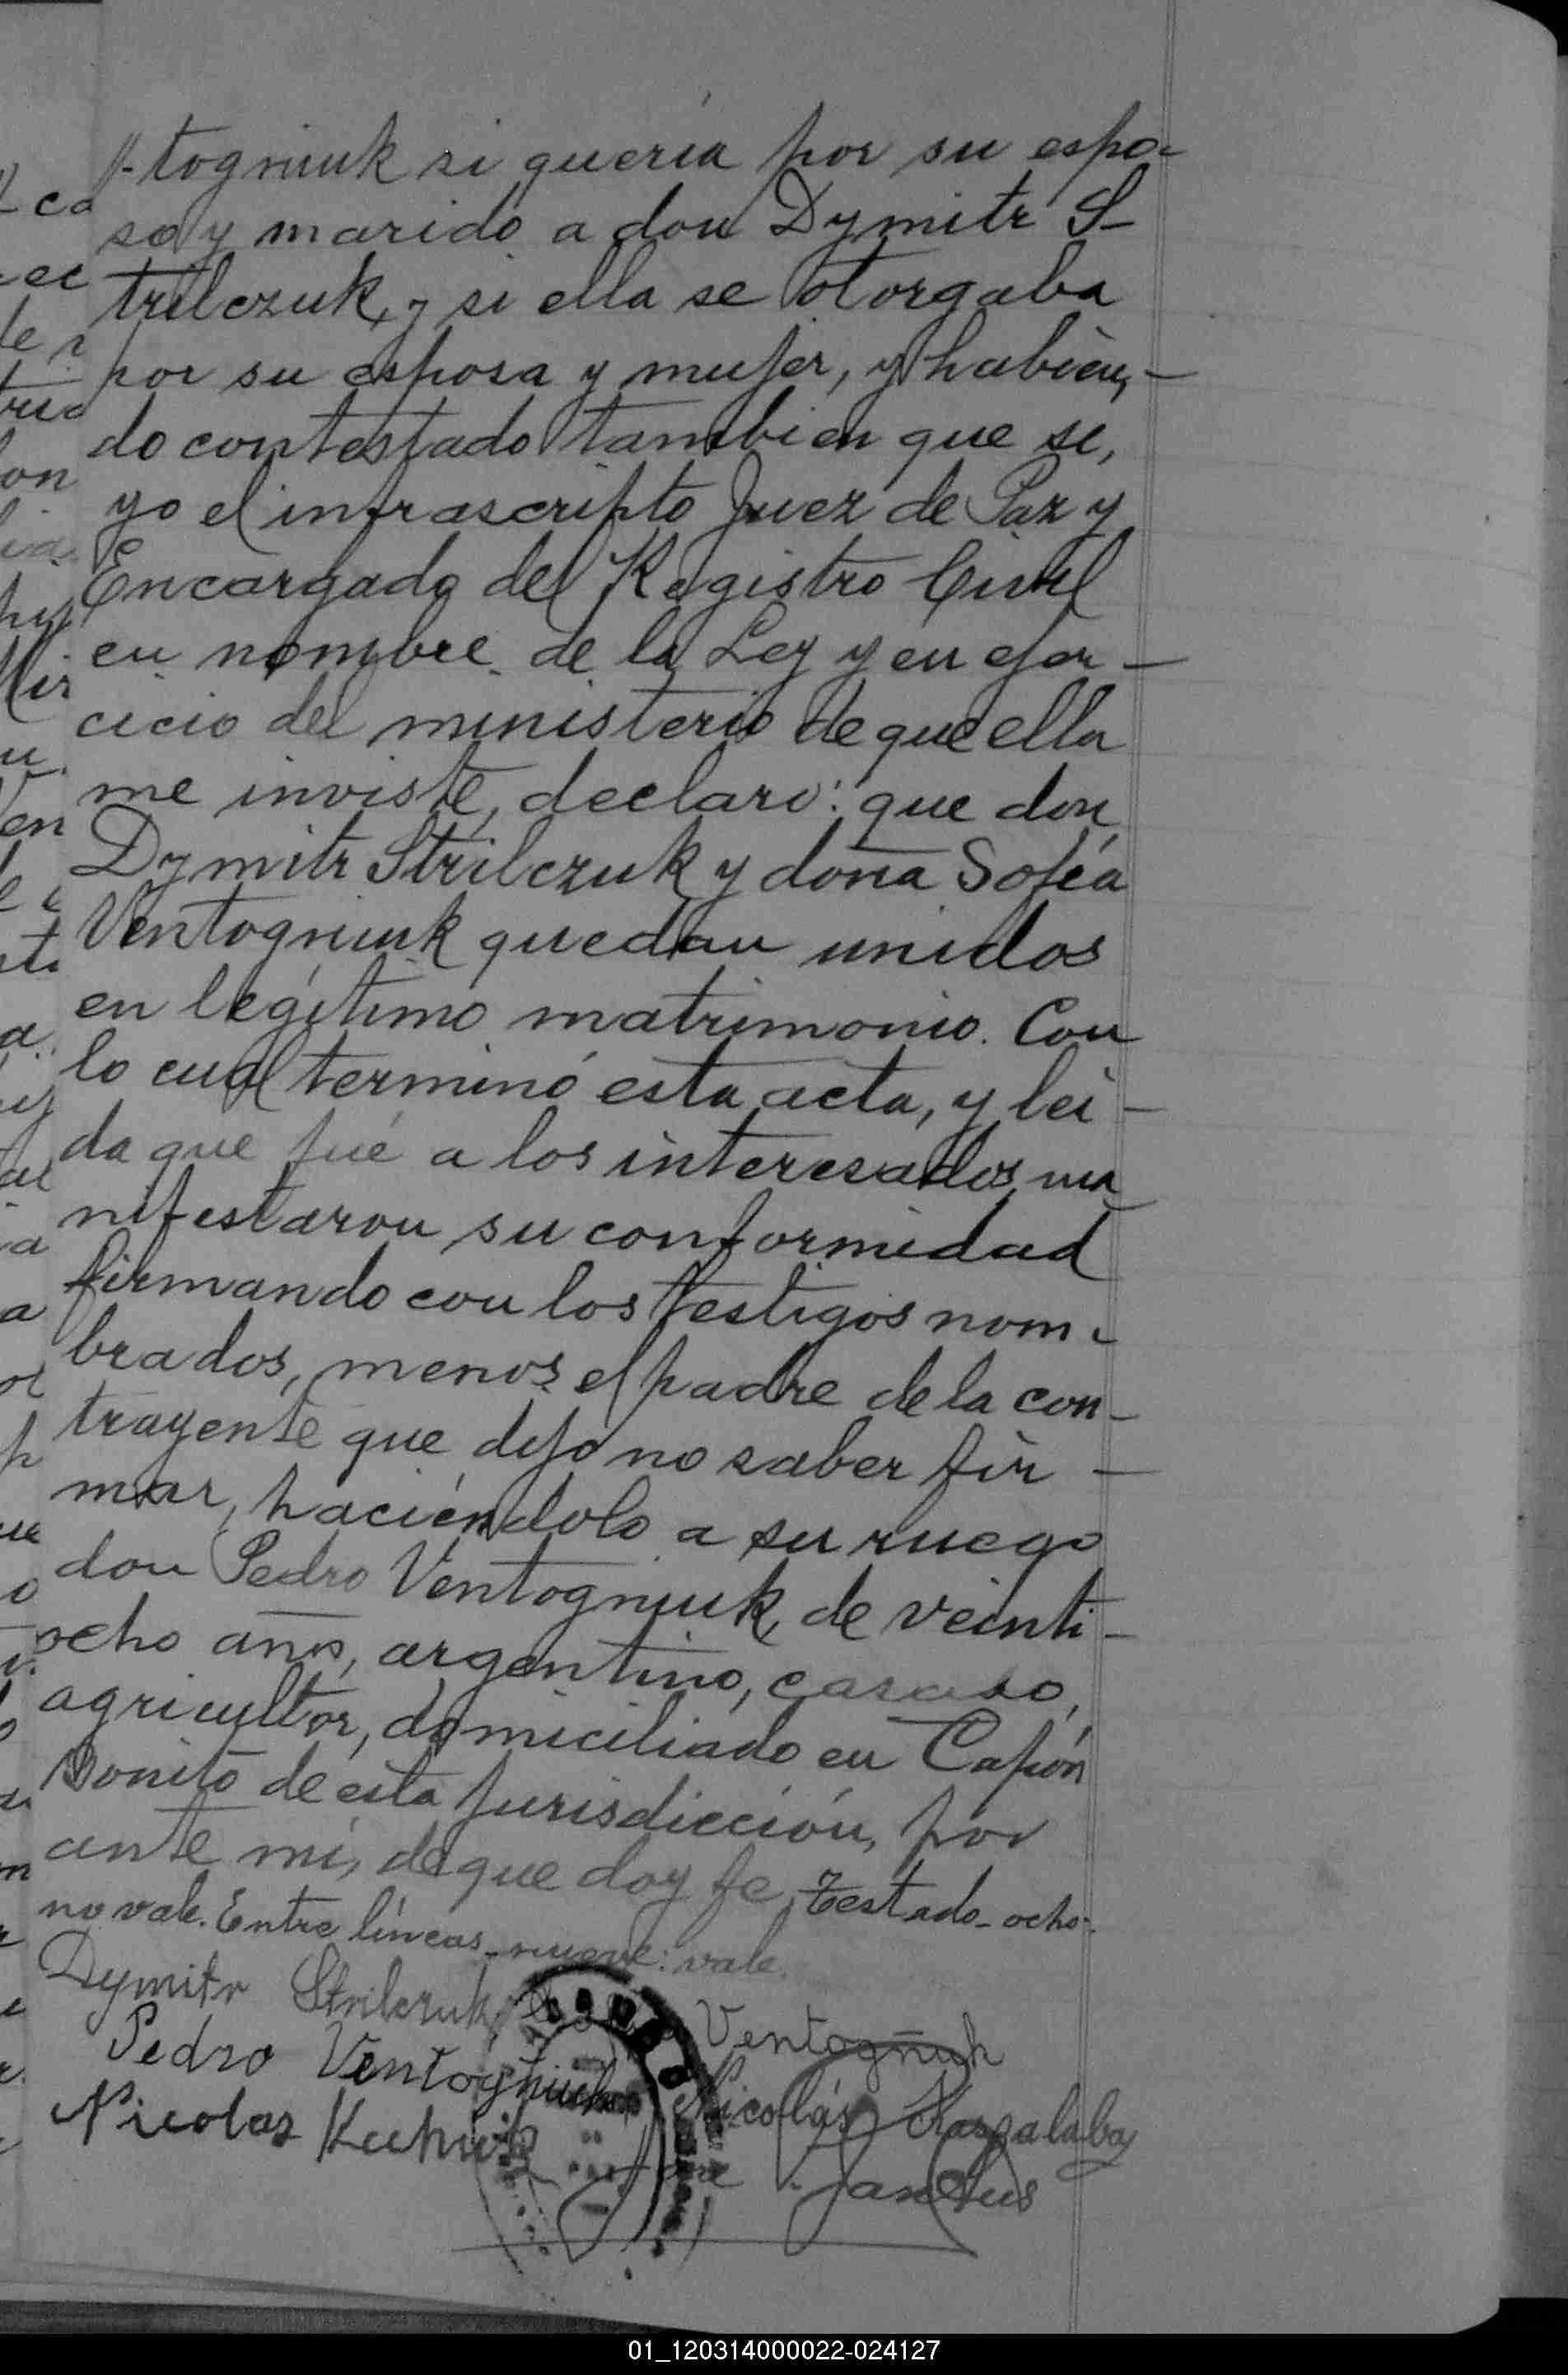 //-togniuk si quería por su espo-
so y marido a don Dymitr S-
trilczuk, y si ella se otorgaba
por su esposa y mujer, y habien-
do contestado tambien que si,
yo el infrascripto Juez de Paz y
Encargado del Registro Civil
en nombre de la Ley y en ejer-
cicio del ministerio de que ella
me inviste, declaro: que don
Dymitr Strilczuk y doña Sofía
Ventogniuk quedan unidos
en legítimo matrimonio. Con
lo cual terminó esta acta, y lei-
da que fué a los interesados ma-
nifestaron su conformidad
firmando con los testigos nom-
brados, menos el padre de la con-
trayente que dijo no saber fir-
mar, haciéndolo a su ruego
don Pedro Ventogniuk, de veinti-
ocho años, argentino, casado,
agricultor, domiciliado en Capón
Bonito de esta jurisdicción, por
ante mi, de que doy fe. Testado-ocho-
no vale. Entre líneas-nueve: vale.
Dymitr Strilczuk Ventogñuk
Pedro Ventogñiuk Nicolás
Nicolas
01_120314000022-024127